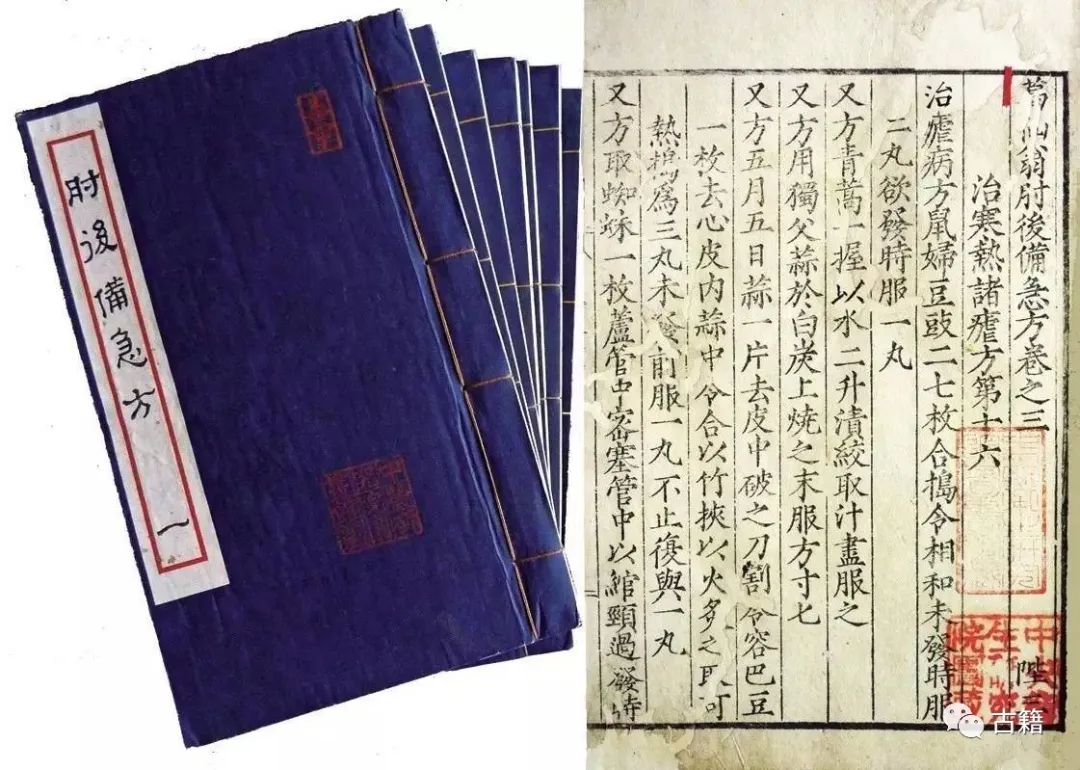 肘後備急方 一
葛仙翁肘後備急方卷之三
治寒熱諸瘧方第十六
治瘧病方鼠婦豆豉二七枚合搗令相和未發時服
二丸欲發時服一丸
又方青蒿一握以水二升漬絞取汁盡服之
又方用獨父蒜於白炭上燒之末服方寸匕
又方五月五日蒜一片去皮中破之刀割令容巴豆
一枚去心皮內蒜中令合以竹挾以火炙之取可
熱搗爲三丸未發前服一丸不止復與一丸
又方取蜘蛛一枚蘆管中密塞管中以綰頸過發時
陛三
古籍